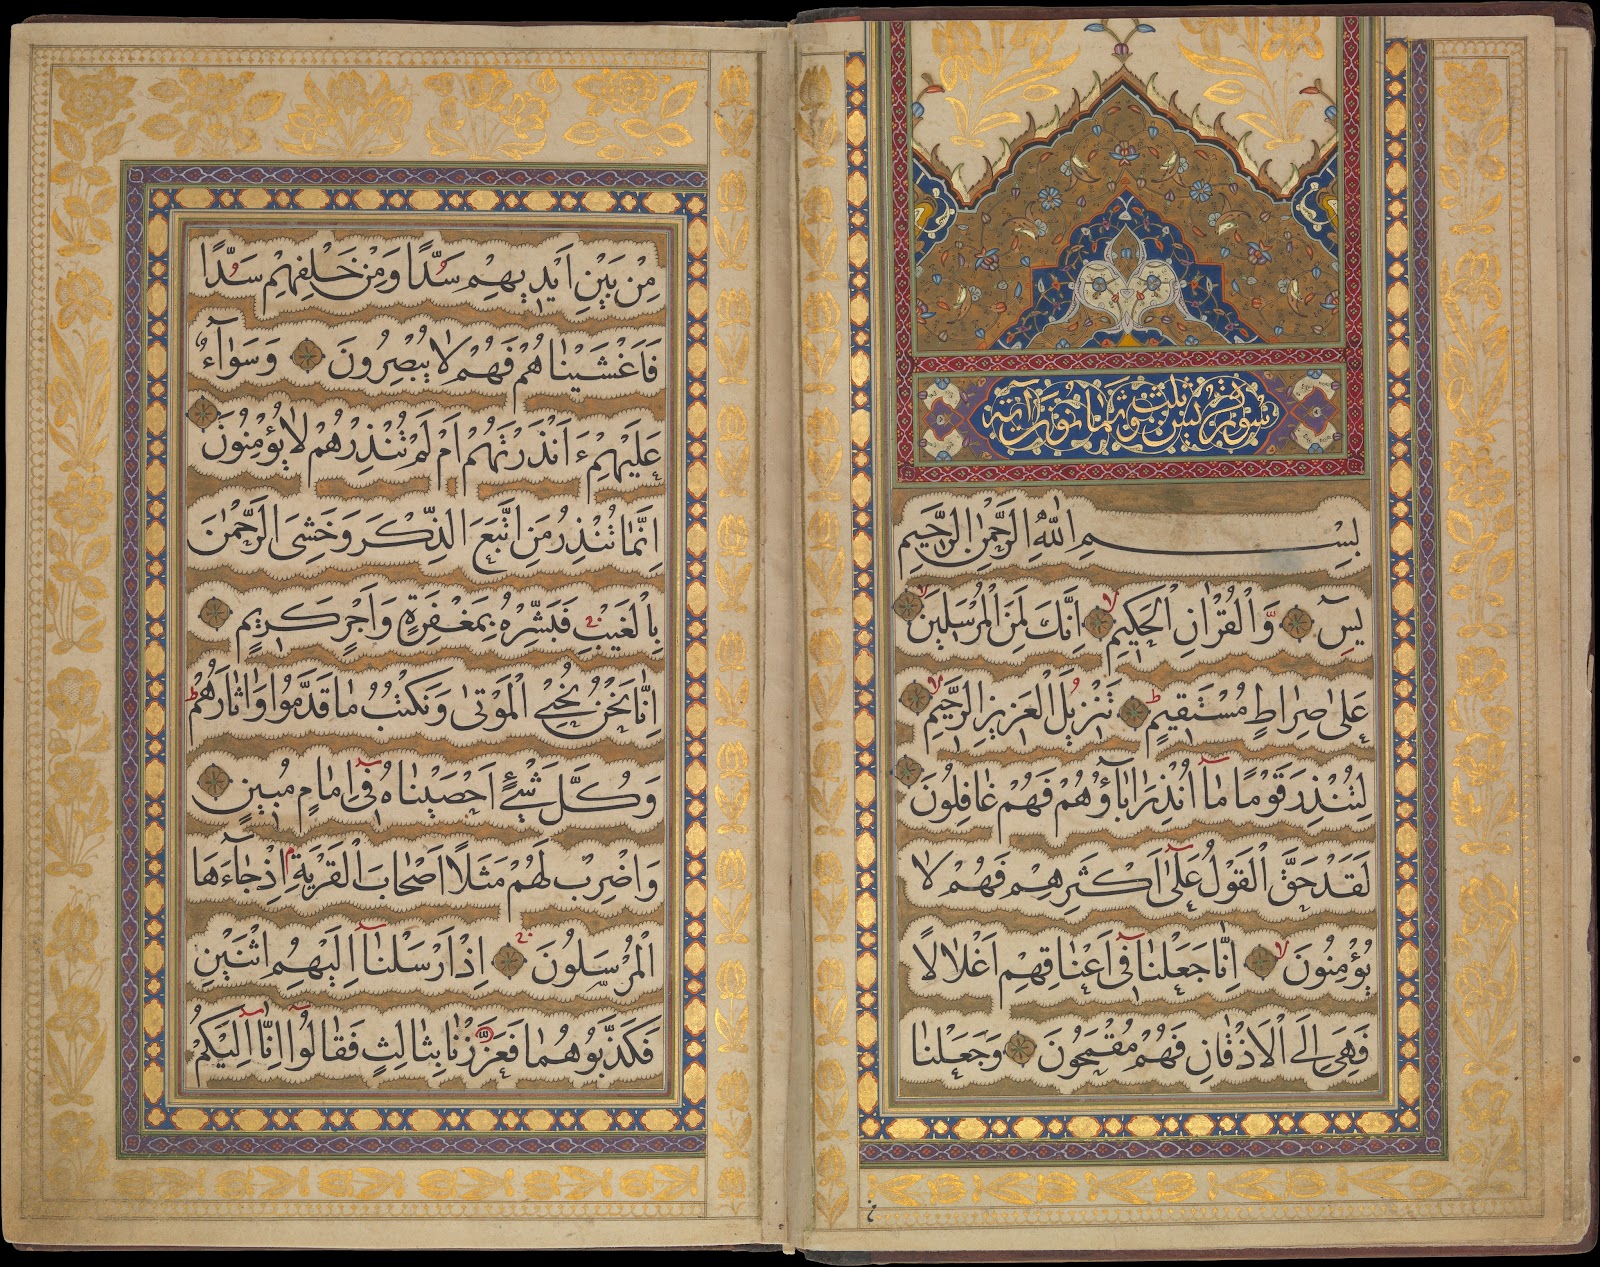 سورة يس ثلث وثمانون آية
بسم الله الرحمن الرحيم
يسٓ وَالْقُرْاٰنِ الْحَكِيمِ اِنَّكَ لَمِنَ الْمُرْسَلِينَ
عَلٰى صِرَاطٍ مُسْتَقِيمٍ تَنْزِيلَ الْعَزِيزِ الرَّحِيمِ
لِتُنْذِرَ قَوْمًا مٰٓا اُنْذِرَ اٰبٰٓاؤُهُمْ فَهُمْ غٰافِلُونَ
لَقَدْ حَقَّ الْقَوْلُ عَلٰٓى اَكْثَرِهِمْ فَهُمْ لٰا
يُؤْمِنُونَ اِنّٰا جَعَلْنٰا فِٓي اَعْنٰاقِهِمْ اَغْلٰالًا
فَهِيَ اِلَى الْاَذْقٰانِ فَهُمْ مُقْمَحُونَ وَجَعَلْنٰا
مِنْ بَيْنِ اَيْدِيهِمْ سَدًّا وَمِنْ خَلْفِهِمْ سَدًّا
فَاَغْشَيْنٰاهُمْ فَهُمْ لٰا يُبْصِرُونَ وَسَوٰٓاءٌ
عَلَيْهِمْ ءَاَنْذَرْتَهُمْ اَمْ لَمْ تُنْذِرْهُمْ لٰا يُؤْمِنُونَ
اِنَّمٰا تُنْذِرُ مَنِ اتَّبَعَ الذِّكْرَ وَخَشِيَ الرَّحْمٰنَ
بِالْغَيْبِ فَبَشِّرْهُ بِمَغْفِرَةٍ وَاَجْرٍ كَرِيمٍ
اِنّٰا نَحْنُ نُحْيِ الْمَوْتٰى وَنَكْتُبُ مٰا قَدَّمُوا وَاٰثٰارَهُمْ
وَكُلَّ شَيْءٍ اَحْصَيْنٰاهُ فِٓي اِمٰامٍ مُبِينٍ
وَاضْرِبْ لَهُمْ مَثَلًا اَصْحٰابَ الْقَرْيَةِ اِذْ جٰٓاءَهَا
الْمُرْسَلُونَ اِذْ اَرْسَلْنٰٓا اِلَيْهِمُ اثْنَيْنِ
فَكَذَّبُوهُمٰا فَعَزَّزْنٰا بِثٰالِثٍ فَقٰالُٓوا اِنّٰٓا اِلَيْكُمْ